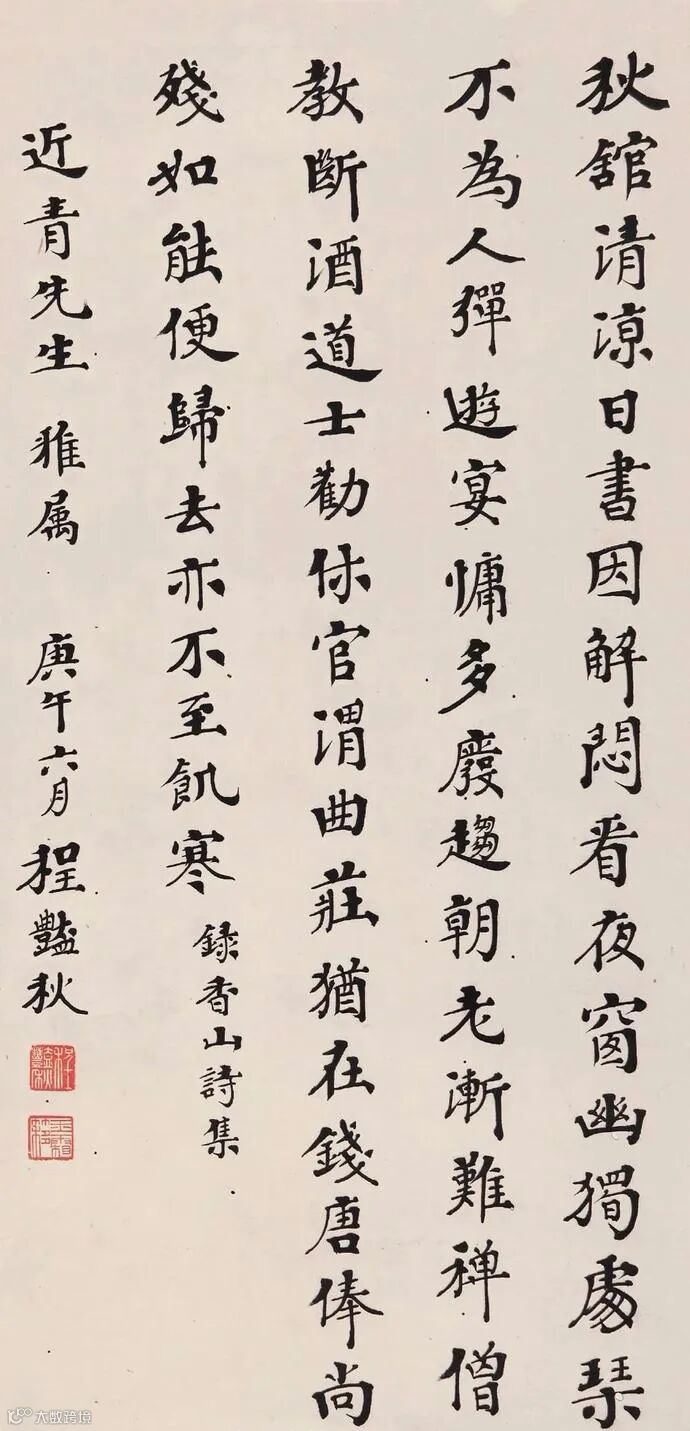 秋舘清涼日書因解悶看夜窗幽獨處琴
不為人彈遊宴慵多廢趨朝老漸難禪僧
教斷酒道士勸休官渭曲莊猶在錢唐俸尚
殘如能便歸去亦不至飢寒
録香山詩集
近青先生 雅属 庚午六月 程豔秋
程豔秋
大数跨境